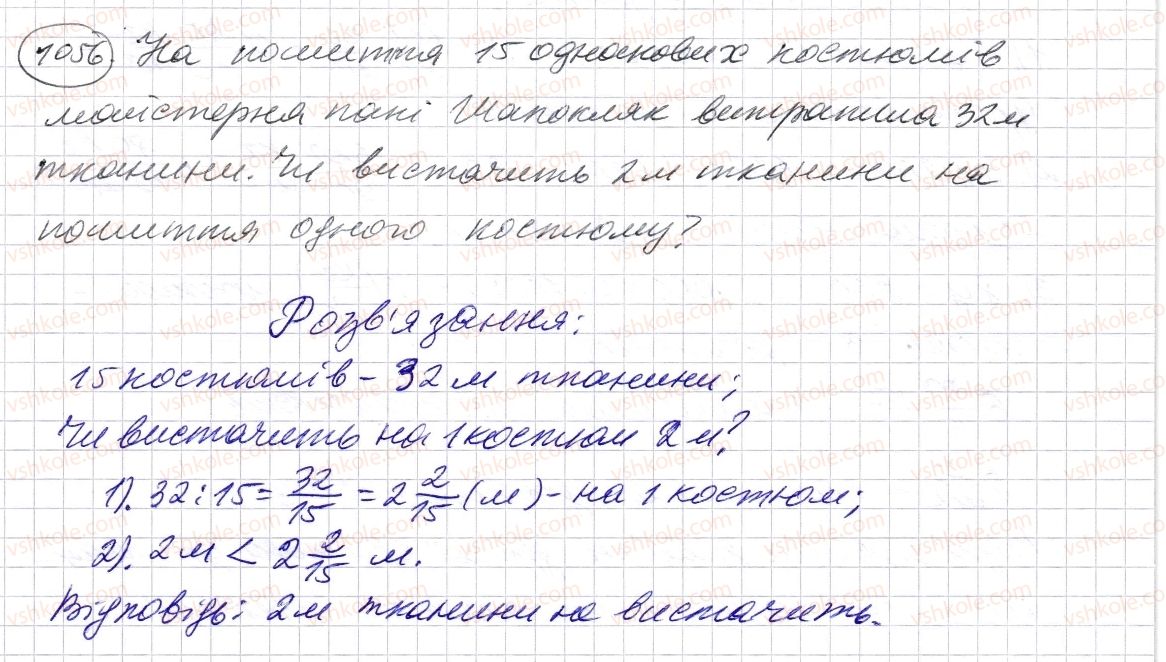 1056 На пошиття 15 однакових костюмів
майстерна пані Шапокляк витратила 32м
тканини. Чи вистачить 2м тканини на
пошиття одного костюму?
Розв'язання:
15 костюмів – 32м тканини;
Чи вистачить на 1 костюм 2м?
1). 32:15 = 32/15 = 2 2/15 (м) - на 1 костюм;
2). 2м < 2 2/15 м.
Відповідь: 2м тканини на вистачить.